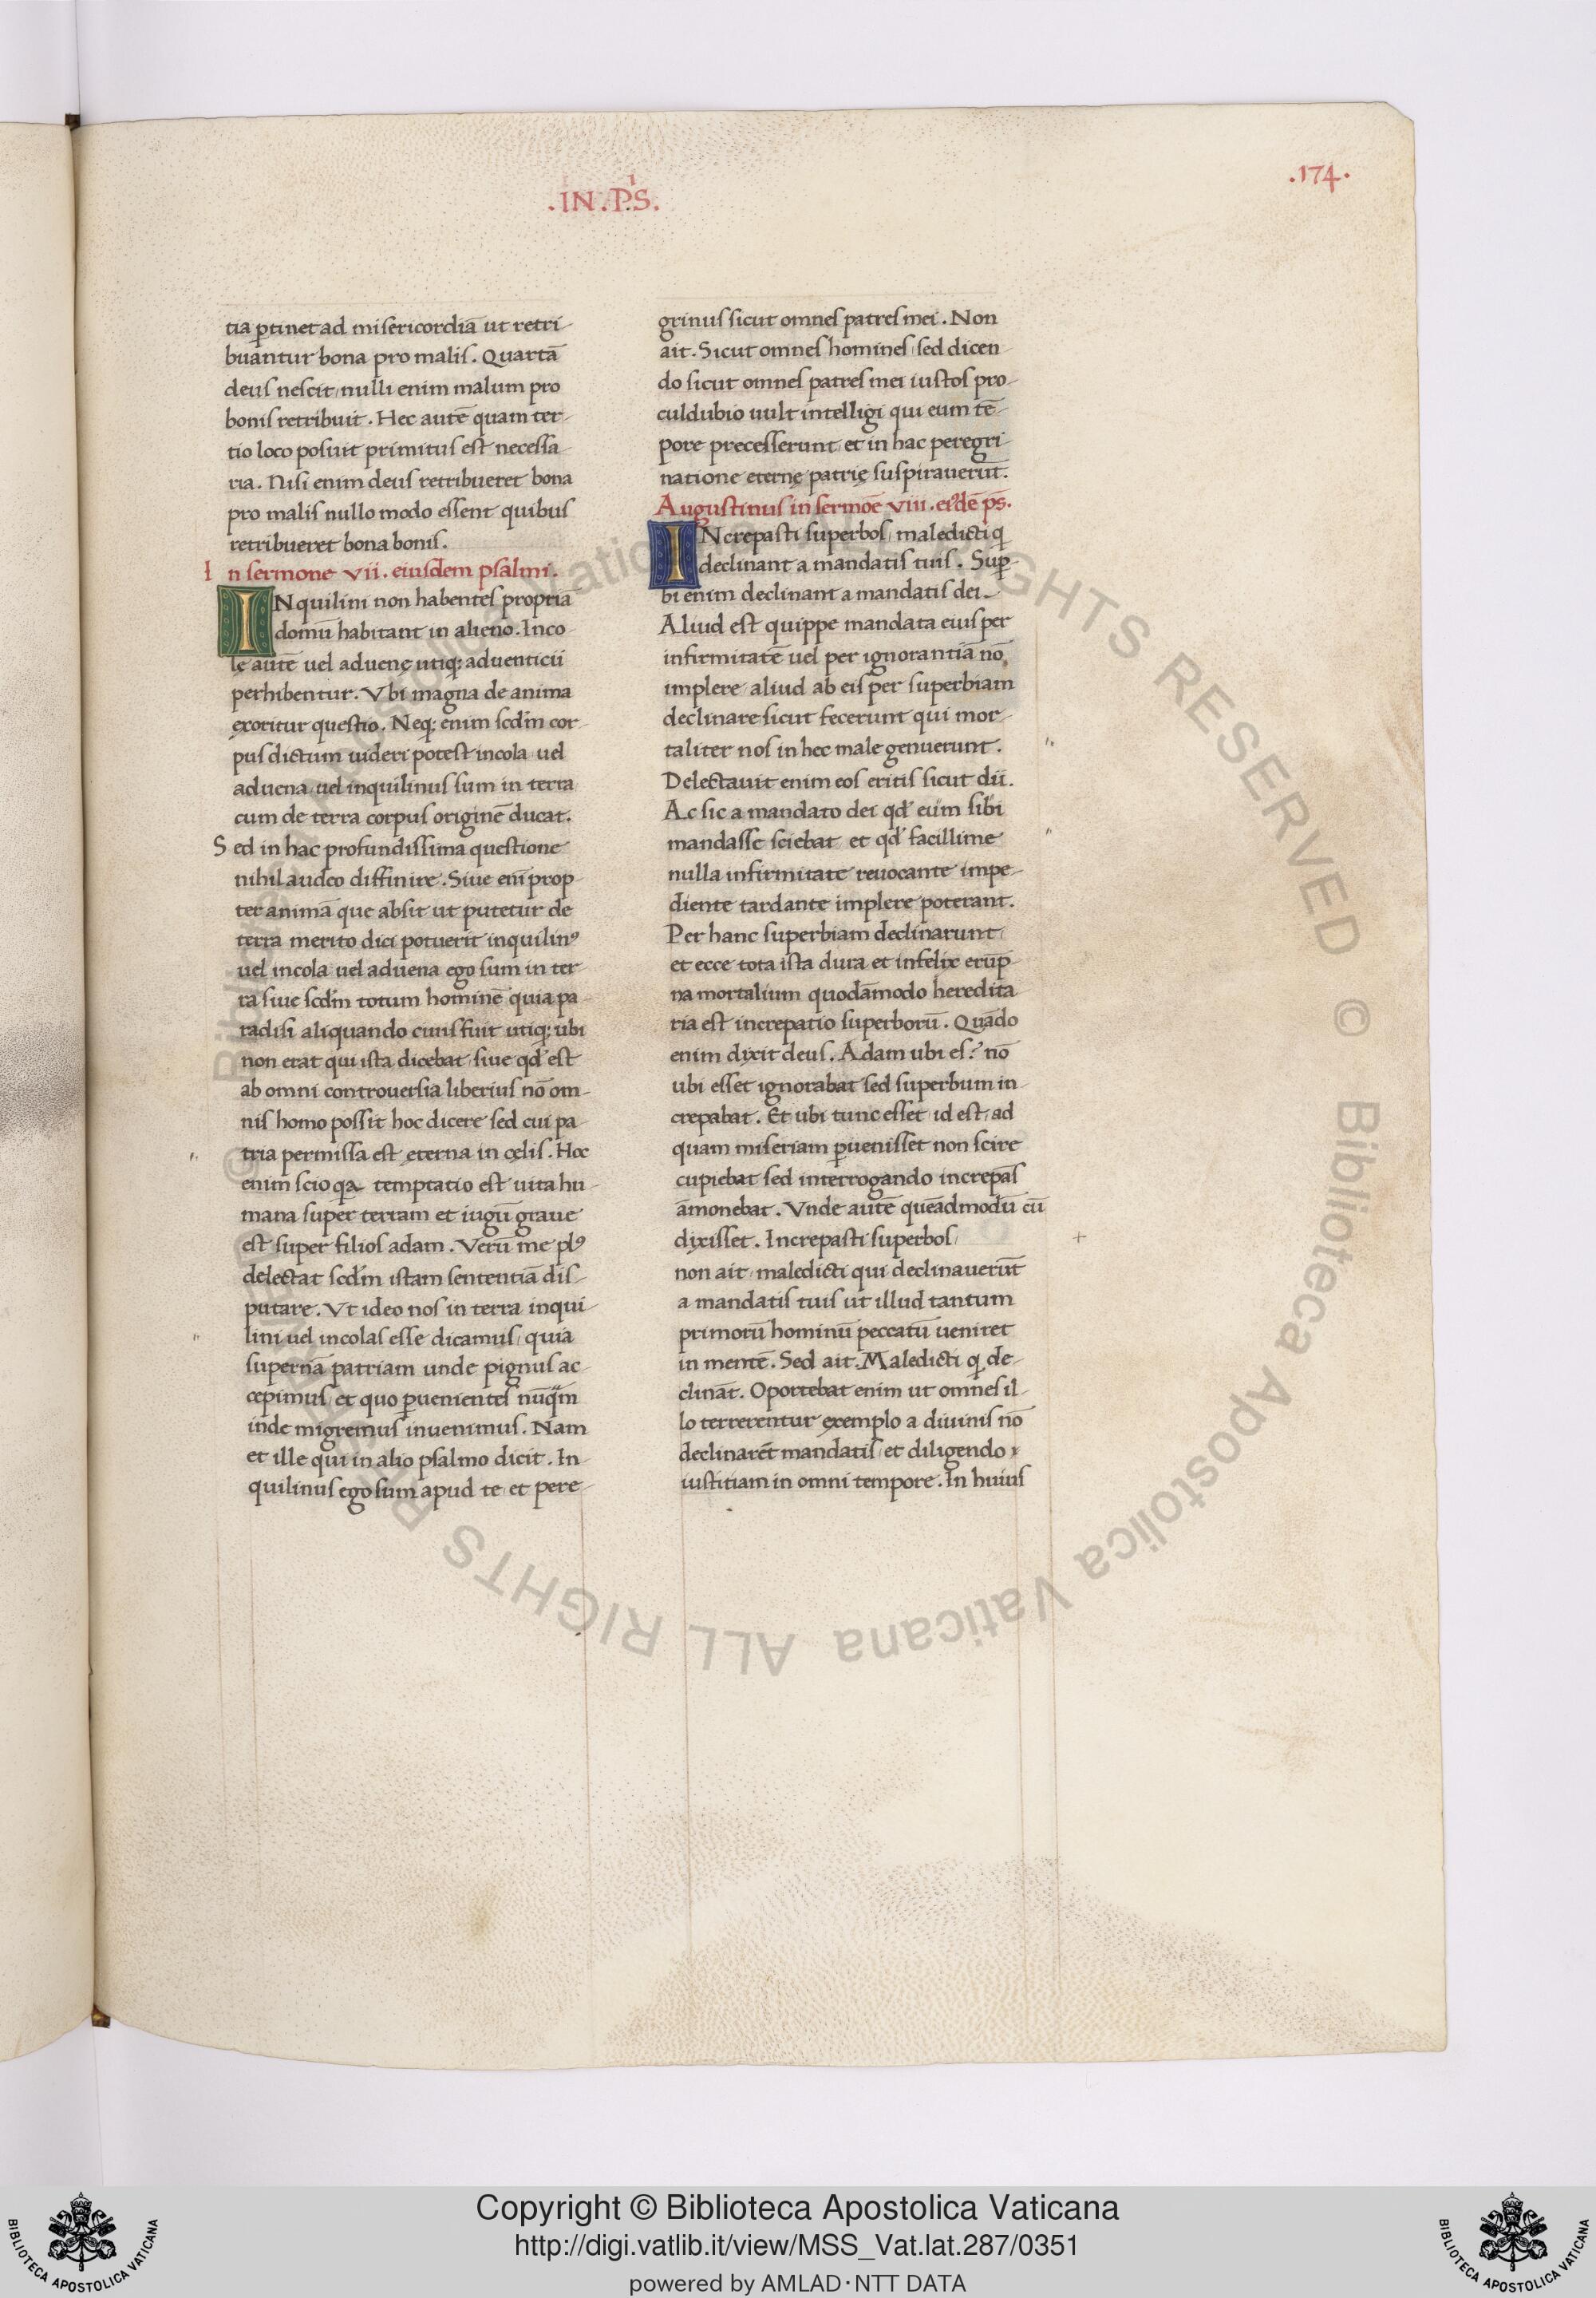 .IN.P̄S.
.174.
tia ꝑtinet ad misericordiā ut retri-
buantur bona pro malis. Quartā
deus nescit, nulli enim malum pro
bonis retribuit. Hec autē quam ter-
tio loco posuit primitus est necessa-
ria. Nisi enim deus retribueret bona
pro malis nullo modo essent quibus
retribueret bona bonis.
In sermone vii. eiusdem psalmi.
INquilini non habentes propria
domū habitant in alieno. Inco-
lę autē uel aduenę utiq; aduenticii
perhibentur. Vbi magna de anima
exoritur questio. Neq; enim scdm̄ cor-
pus dictum uideri potest incola uel
aduena uel inquilinus sum in terra
cum de terra corpus originē ducat.
Sed in hac profundissima questione
nihil audeo diffinire. Siue eni̅ prop-
ter animā que absit ut putetur de
terra merito dici potuerit inquilinꝰ
uel incola uel aduena ego sum in ter-
ra siue scdm̄ totum hominē quia pa-
radisi aliquando ciuis fuit utiq; ubi
non erat qui ista dicebat, siue qd̛ est
ab omni controuersia liberius nō om-
nis homo possit hoc dicere sed cui pa-
tria permissa est ęterna in cęlis. Hoc
enim scio qa temptatio est uita hu-
mana super terram et iugū graue
est super filios adam. Verū me plꝰ
delectat scdm̄ istam sententiā dis-
putare. Vt ideo nos in terra inqui-
lini uel incolas esse dicamus, quia
supernā patriam unde pignus ac-
cepimus, et quo ꝑuenientes nūq̄m
inde migremus inuenimus. Nam
et ille qui in alio psalmo dicit. In-
quilinus ego sum apud te et pere-
grinus sicut omnes patres mei. Non
ait. Sicut omnes homines, sed dicen-
do sicut omnes patres mei iustos pro-
culdubio uult intelligi qui eum tē-
pore precesserunt, et in hac peregri-
natione eternę patrię suspirauerūt.
Augustinus in sermōe viii. eiꝰdē p̄s.
INcrepasti superbos, maledicti q̇
declinant a mandatis tuis. Suꝑ-
bi enim declinant a mandatis dei.
Aliud est quippe mandata eius per
infirmitatē uel per ignorantiā nō
implere, aliud ab eis per superbiam
declinare sicut fecerunt qui mor-
taliter nos in hec male genuerunt.
Delectauit enim eos eritis sicut dii.
Ac sic a mandato dei qd̛ eum sibi
mandasse sciebat, et qd̛ facillime
nulla infirmitate reuocante impe-
diente tardante implere poterant.
Per hanc superbiam declinarunt,
et ecce tota ista dura et infelix erūp-
na mortalium quodāmodo heredita
ria est increpatio superborū. Quādo
enim dixit deus. Adam ubi es? nō
ubi esset ignorabat sed superbum in-
crepabat. Et ubi tunc esset, id est, ad
quam miseriam ꝑuenisset non scire
cupiebat sed interrogando increpās
āmonebat. Vnde autē queādmodū cū
dixisset. Increpasti superbos,
non ait, maledicti qui declinauerūt
a mandatis tuis ut illud tantum
primorū hominū peccatū ueniret
in mentē. Sed ait. Maledicti q̇ de-
clinā̄t. Oportebat enim ut omnes il-
lo terrerentur exemplo a diuinis nō
declinarē̄t mandatis, et diligendo
iustitiam in omni tempore. In huius
© Biblioteca Apostolica Vaticana ALL RIGHTS RESERVED © Biblioteca Apostolica Vaticana ALL RIGHTS RESERVED
Copyright © Biblioteca Apostolica Vaticana
http://digi.vatlib.it/view/MSS_Vat.lat.287/0351
powered by AMLAD·NTT DATA
BIBLIOTECA APOSTOLICA VATICANA
BIBLIOTECA APOSTOLICA VATICANA